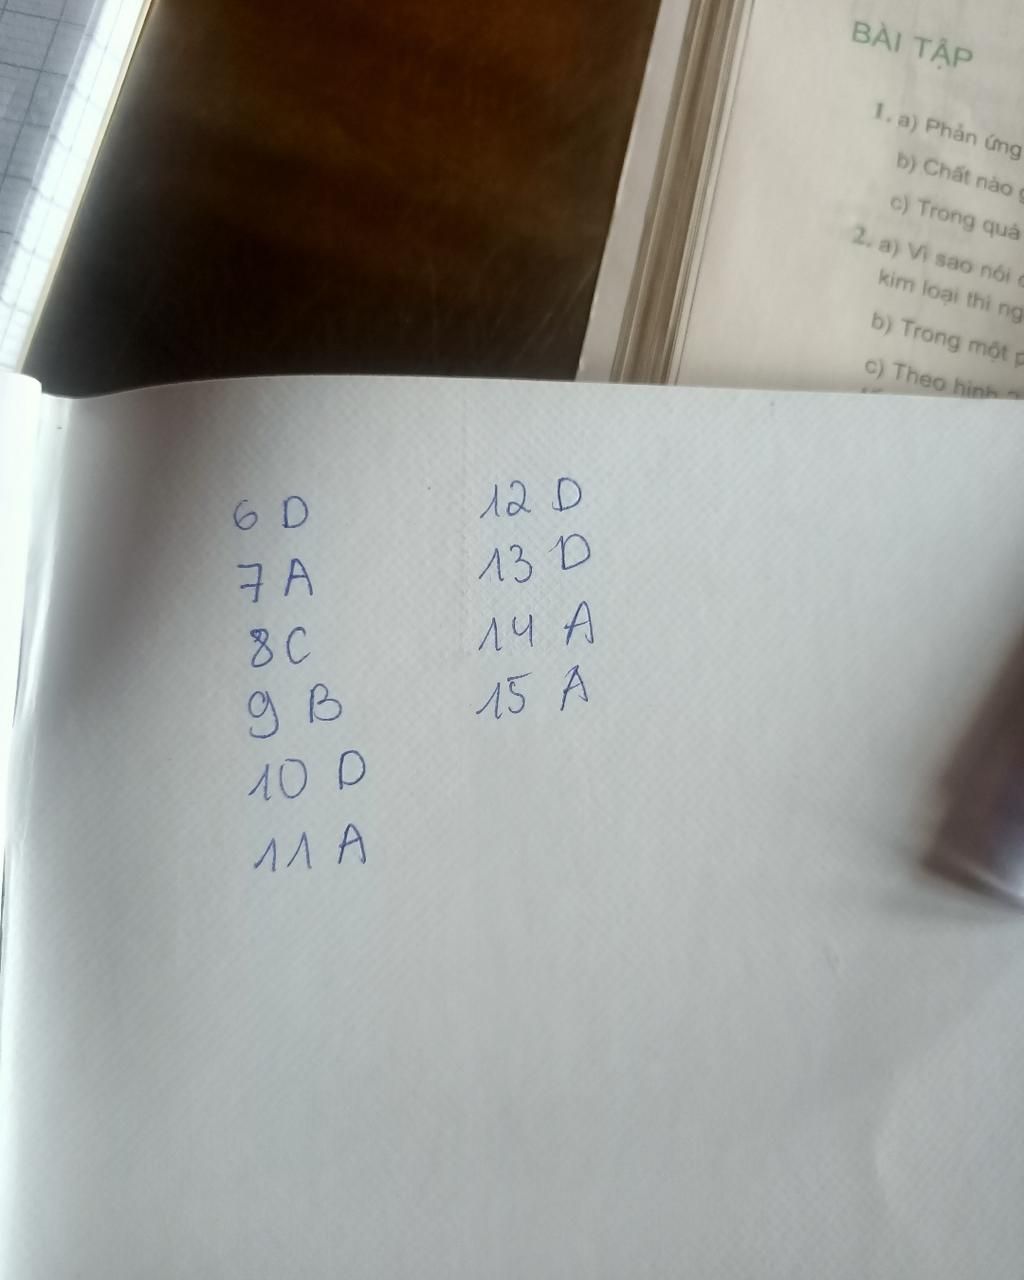 BÀI TẬP
1. a) Phản ứng
b) Chất nào
c) Trong quá
2. a) Vì sao nói
kim loại thì
b) Trong một
c) Theo hình
6 D
7 A
8 C
9 B
10 D
11 A
12 D
13 D
14 A
15 A